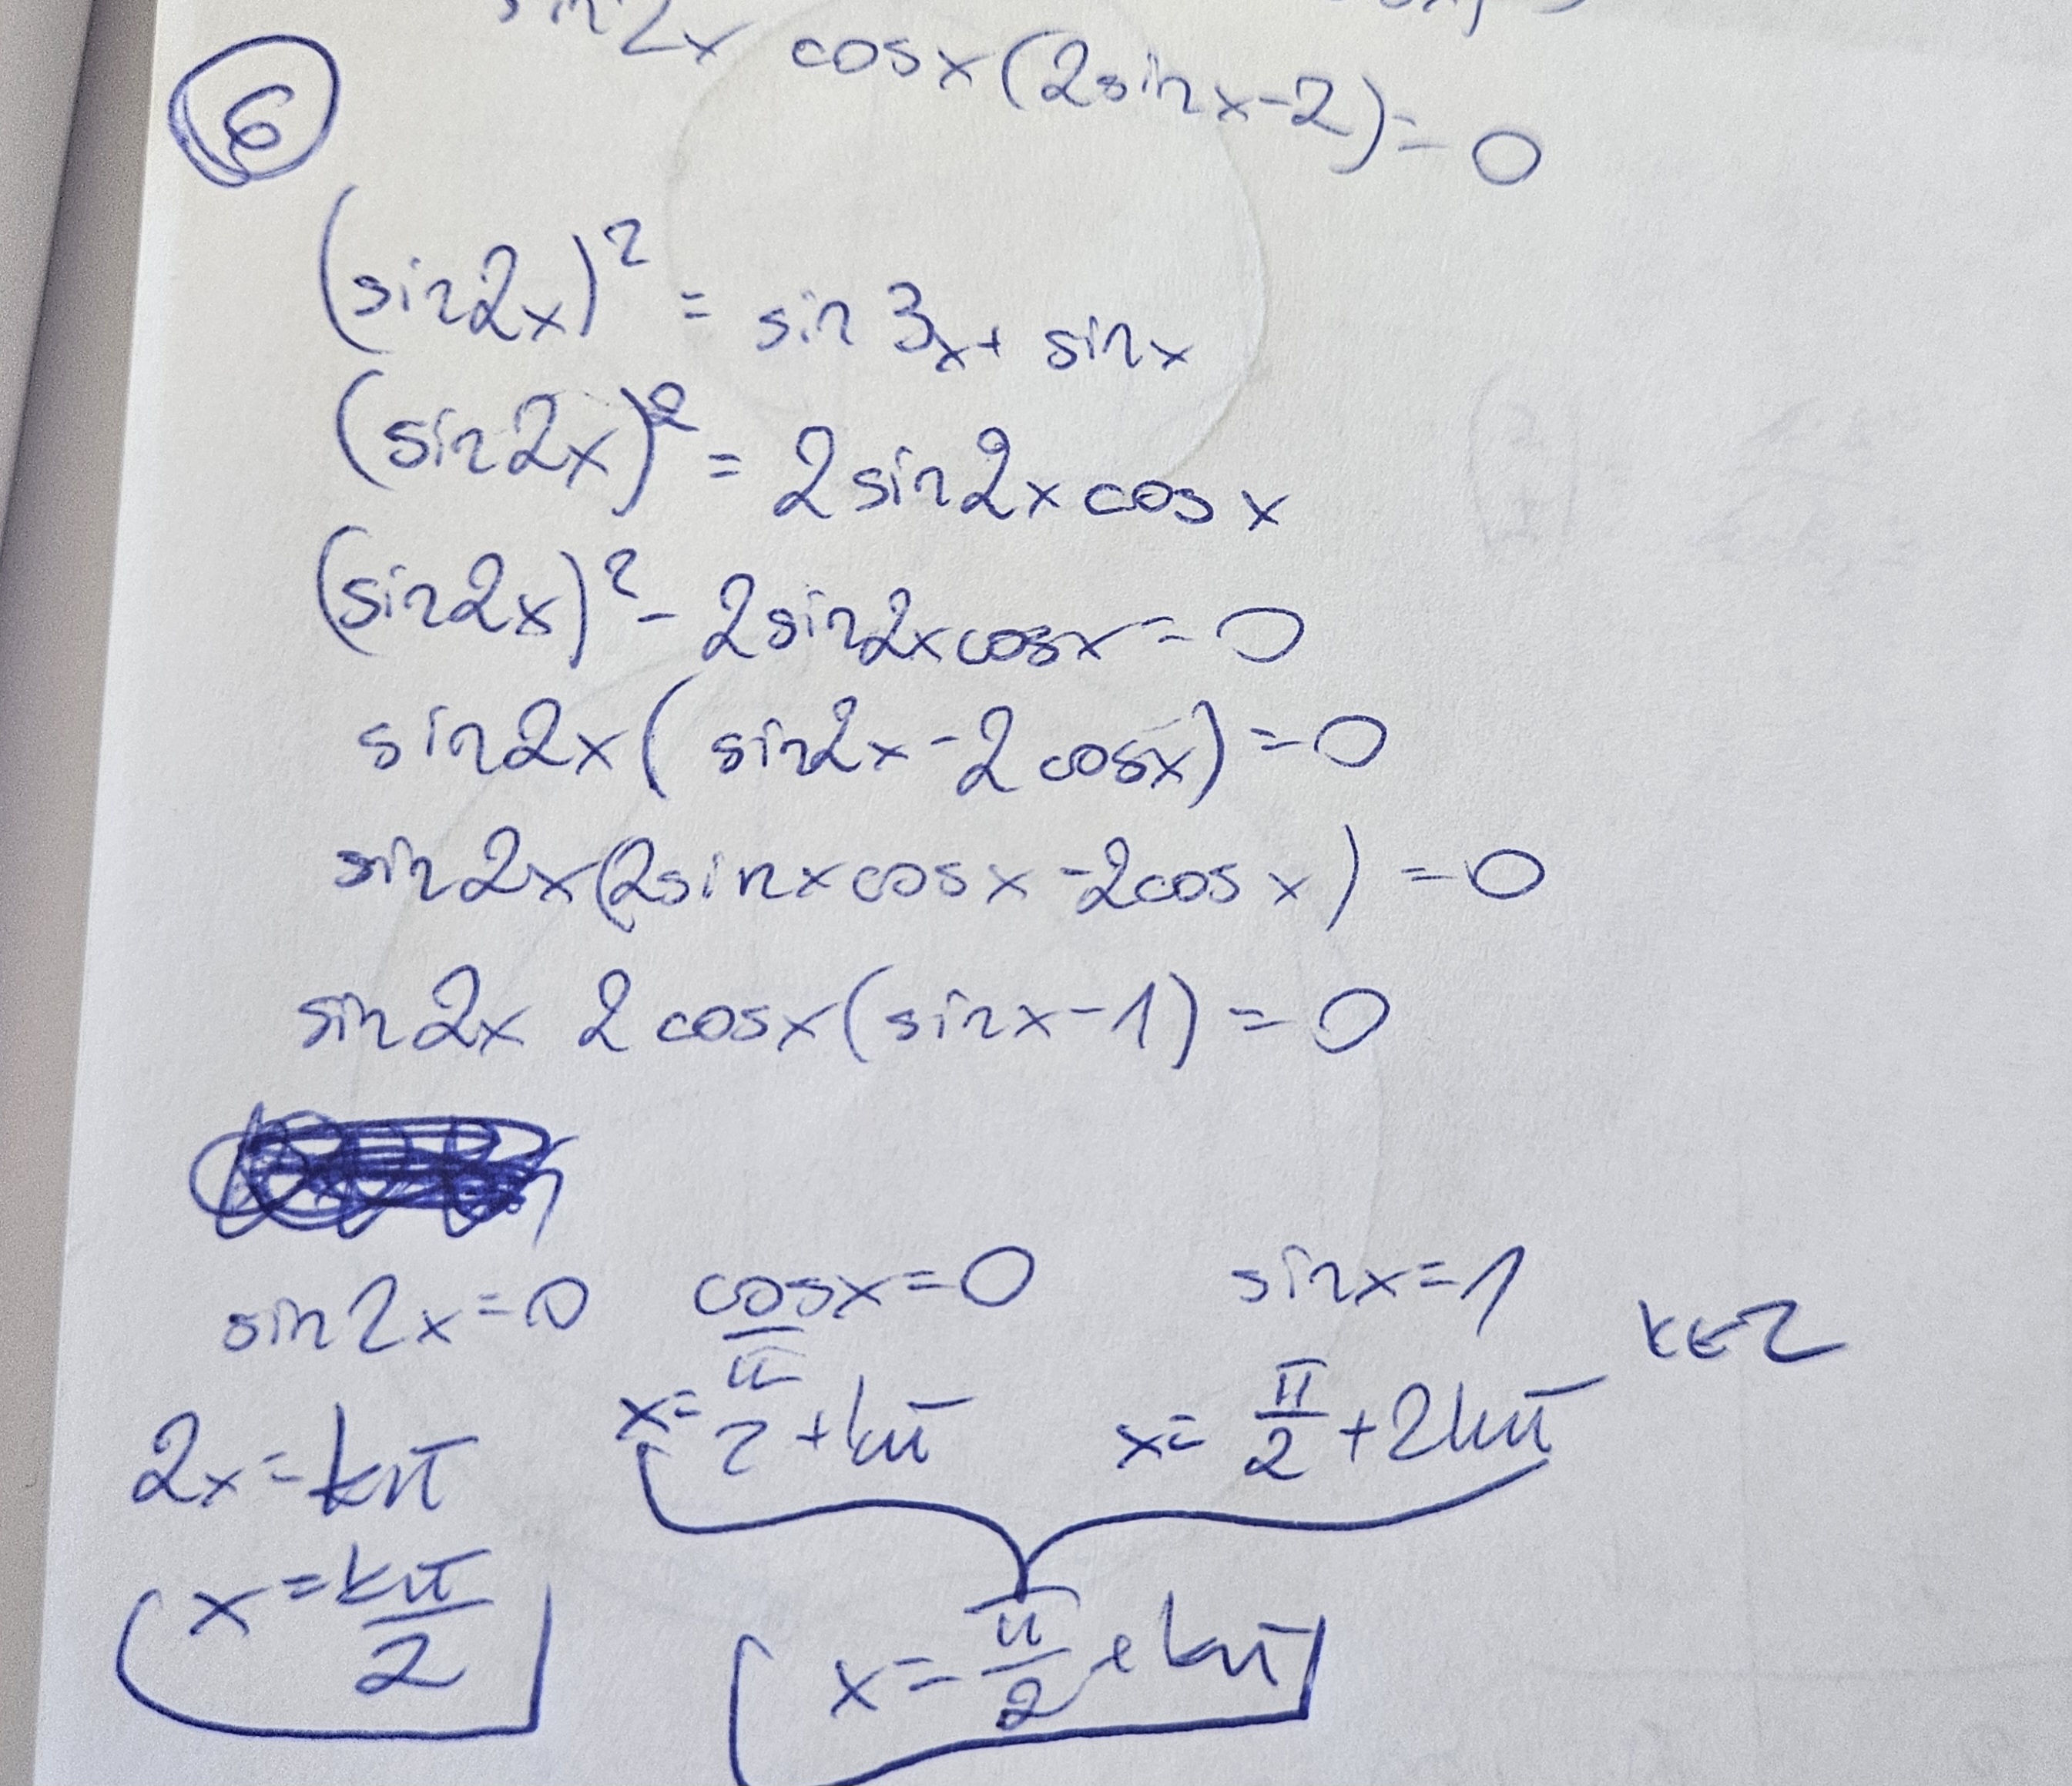 sin2x cosx(2sinx-2)=0
6
(sin2x)² = sin3x + sinx
(sin2x)² = 2sin2x cosx
(sin2x)² - 2sin2x cosx = 0
sin2x(sin2x - 2cosx) = 0
sin2x(2sinx cosx - 2cosx) = 0
sin2x 2cosx(sinx - 1) = 0
sin2x=0 cosx=0 sinx=1 k∈Z
2x=kπ x=π/2+kπ x=π/2+2kπ
x=kπ/2 x=π/2+kπ